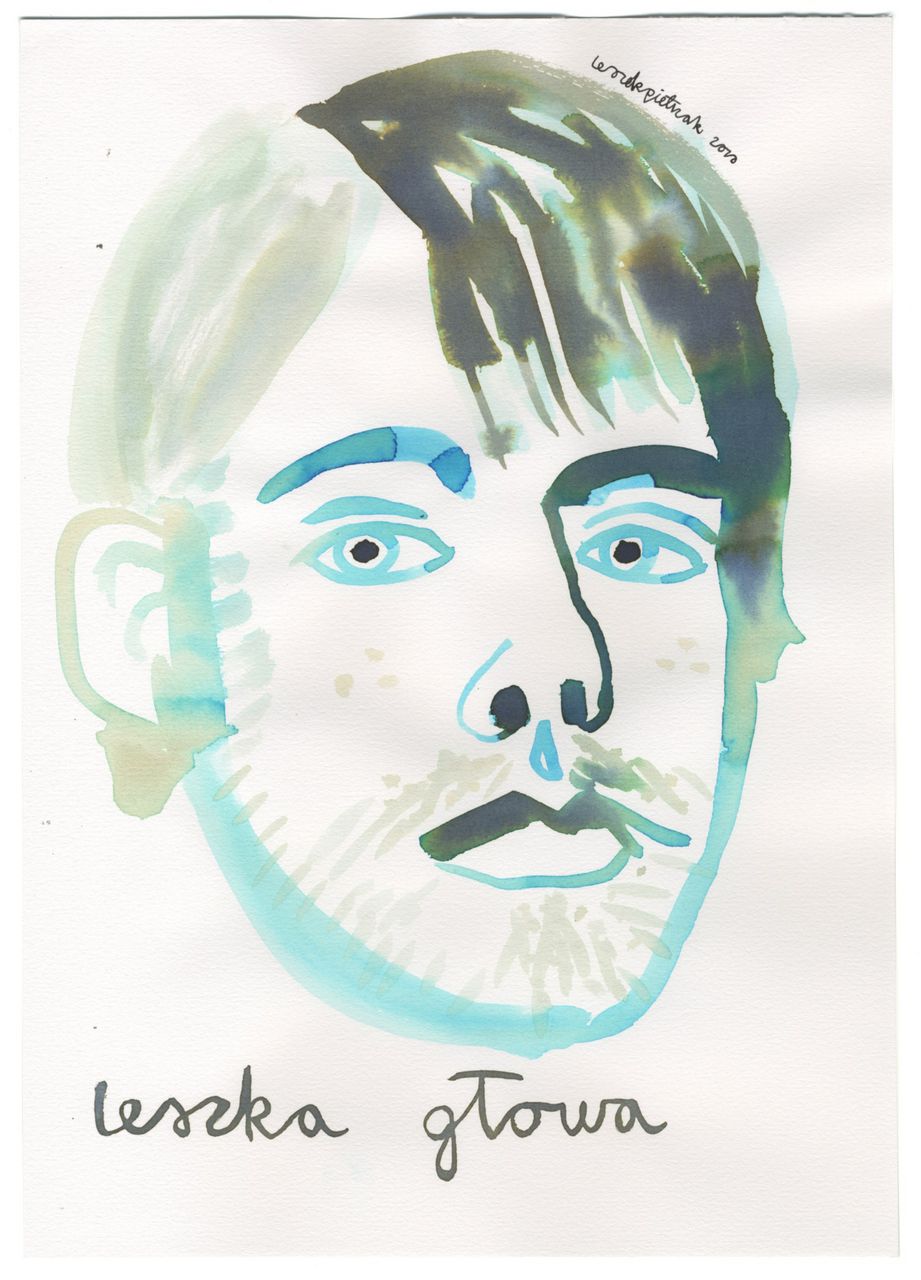 leszekpietrzak 2010
leszka głowa